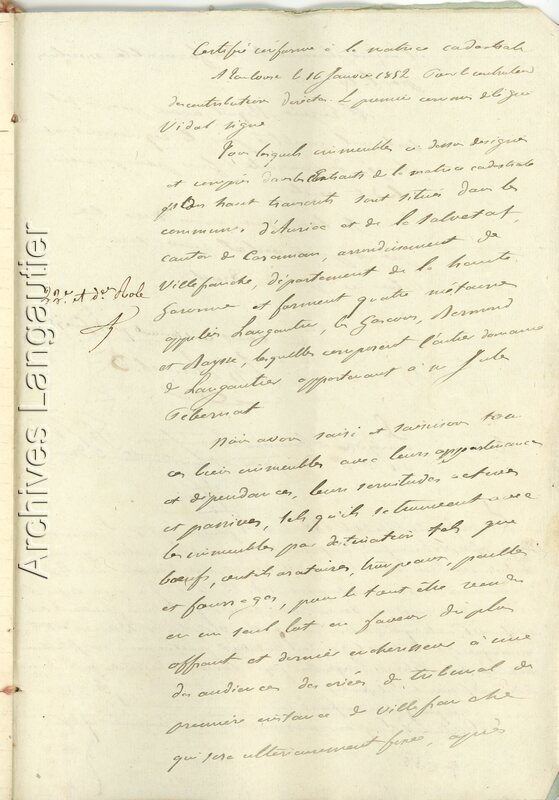 Certifié conforme à la matrice cadastrale
A Toulouse le 16 Janvier 1852 Pour le controleur
des contributions directes. Le premier commis
Vidal signé
Tous lesquels immeubles ci dessus désignés
et compris dans les Extraits de la matrice cadastrale
plus haut transcrits sont situés dans les
communes d'Auriac et de la Salvetat,
canton de Caraman, arrondissement de
Villefranche, département de la haute
Garonne et forment quatre métairies
appelées Langautier, les Gascous, Bermond
et Raysse, lesquelles composent l'entier domaine
de Langautier appartenant à Mr Jules
Nous avons saisi et saisissons tous
ces biens immeubles avec leurs appartenances
et dépendances, leurs servitudes actives
et passives, tels qu'ils se trouvent avec
les immeubles par destination tels que
bœufs, outils aratoires, troupeaux, pailles
et fourrages, pour le tout être vendu
en un seul lot en faveur du plus
offrant et dernier enchérisseur à une
des audiences des criées du tribunal de
première instance de Villefranche
qui sera ultérieurement fixée, après
22e et de Role
Archives Langautier